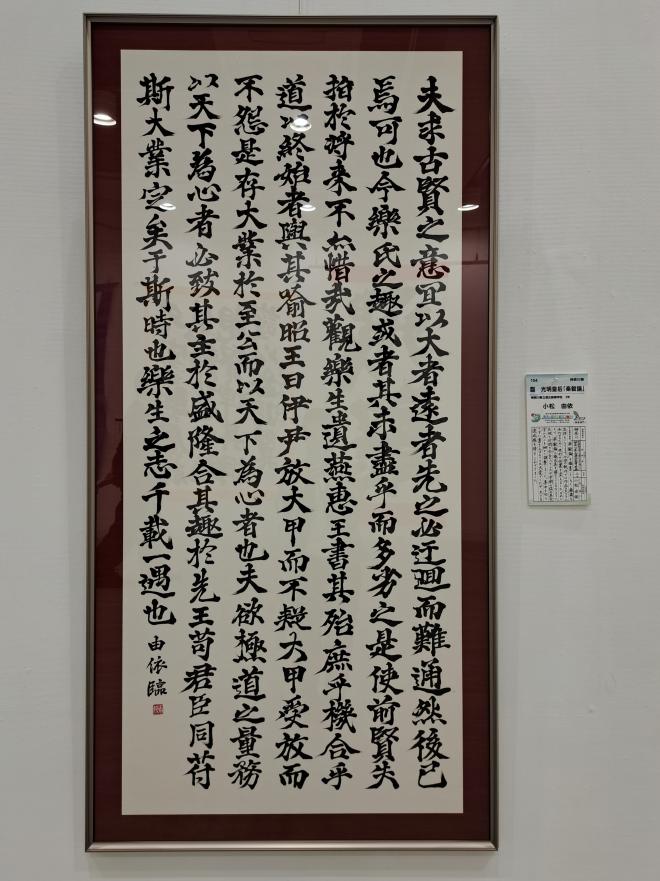 夫求古賢之意宜以大者遠者先之必迂廻而難通然後已
焉可也今樂氏之趣或者其未盡乎而多劣之是使前賢失
指於将来不亦惜哉觀樂生遺燕惠王書其殆庶乎機合乎
道以終始者與其喻昭王曰伊尹放大甲而不疑大甲受放而
不怨是存大業於至公而以天下為心者也夫欲極道之量務
以天下為心者必致其主於盛隆合其趣於先王苟君臣同符
斯大業定矣于斯時也樂生之志千載一遇也
由依臨
104 神奈川県
臨 光明皇后「楽毅論」
小松 由依